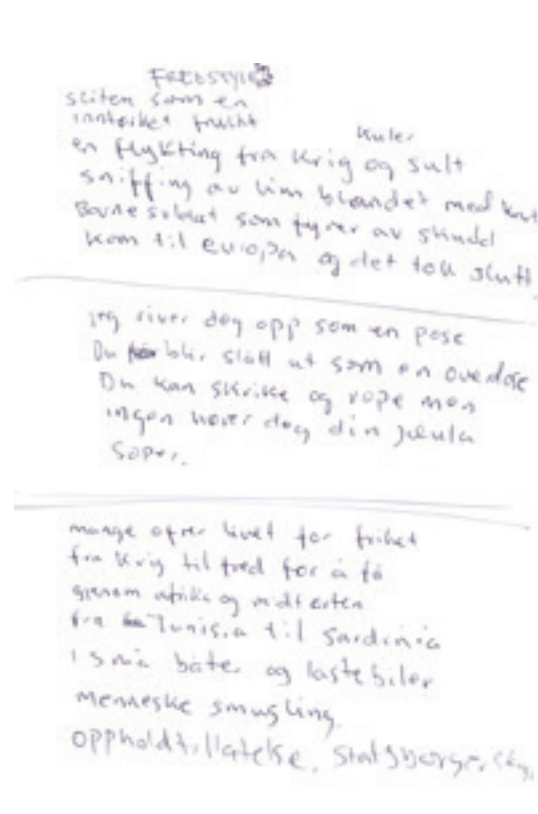 FREESTYLE
sliten som en
inntørket frukt
kuler
en flykting fra krig og sult
sniffing av lim blandet med
Barnesoldat som fyrer av skudd
kom til europa og det tok slutt
jeg river deg opp som en pose
Du blir slått ut som en overdose
Du kan skrike og rope men
ingen hører deg din jævla
soper.
mange ofrer livet for frihet
fra krig til fred for å få
gjenom afrika og midtøsten
fra Tunisia til Sardinia
i små båter og lastebiler
menneske smugling.
oppholdtillatelse, statsborgerskap,